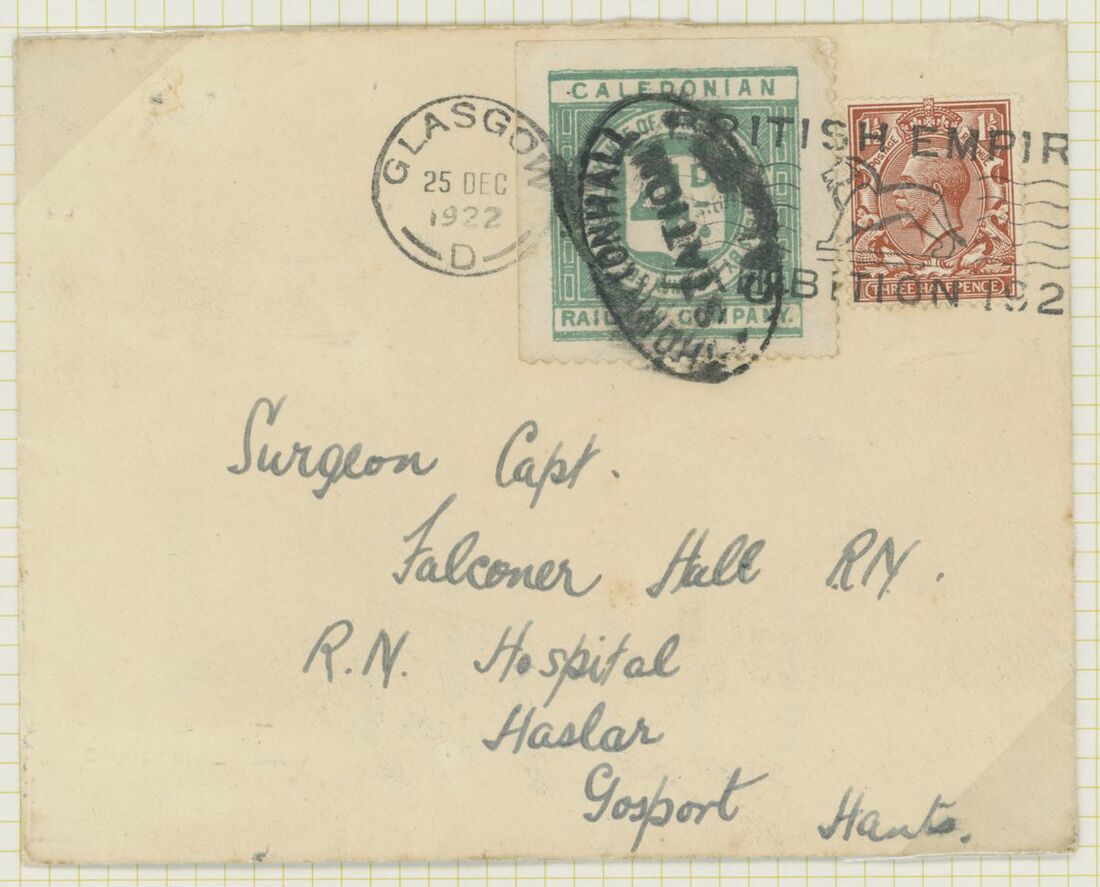 GLASGOW
25 DEC
1922
D
CALEDONIAN
4D.
RAILWAY COMPANY.
THORNTONHALL
STATION
BRITISH EMPIR
EXHIBITION 192
1½ 1½
POSTAGE REVENUE
THREE HALFPENCE
Surgeon Capt.
Falconer Hall RN.
R.N. Hospital
Haslar
Gosport Hants.